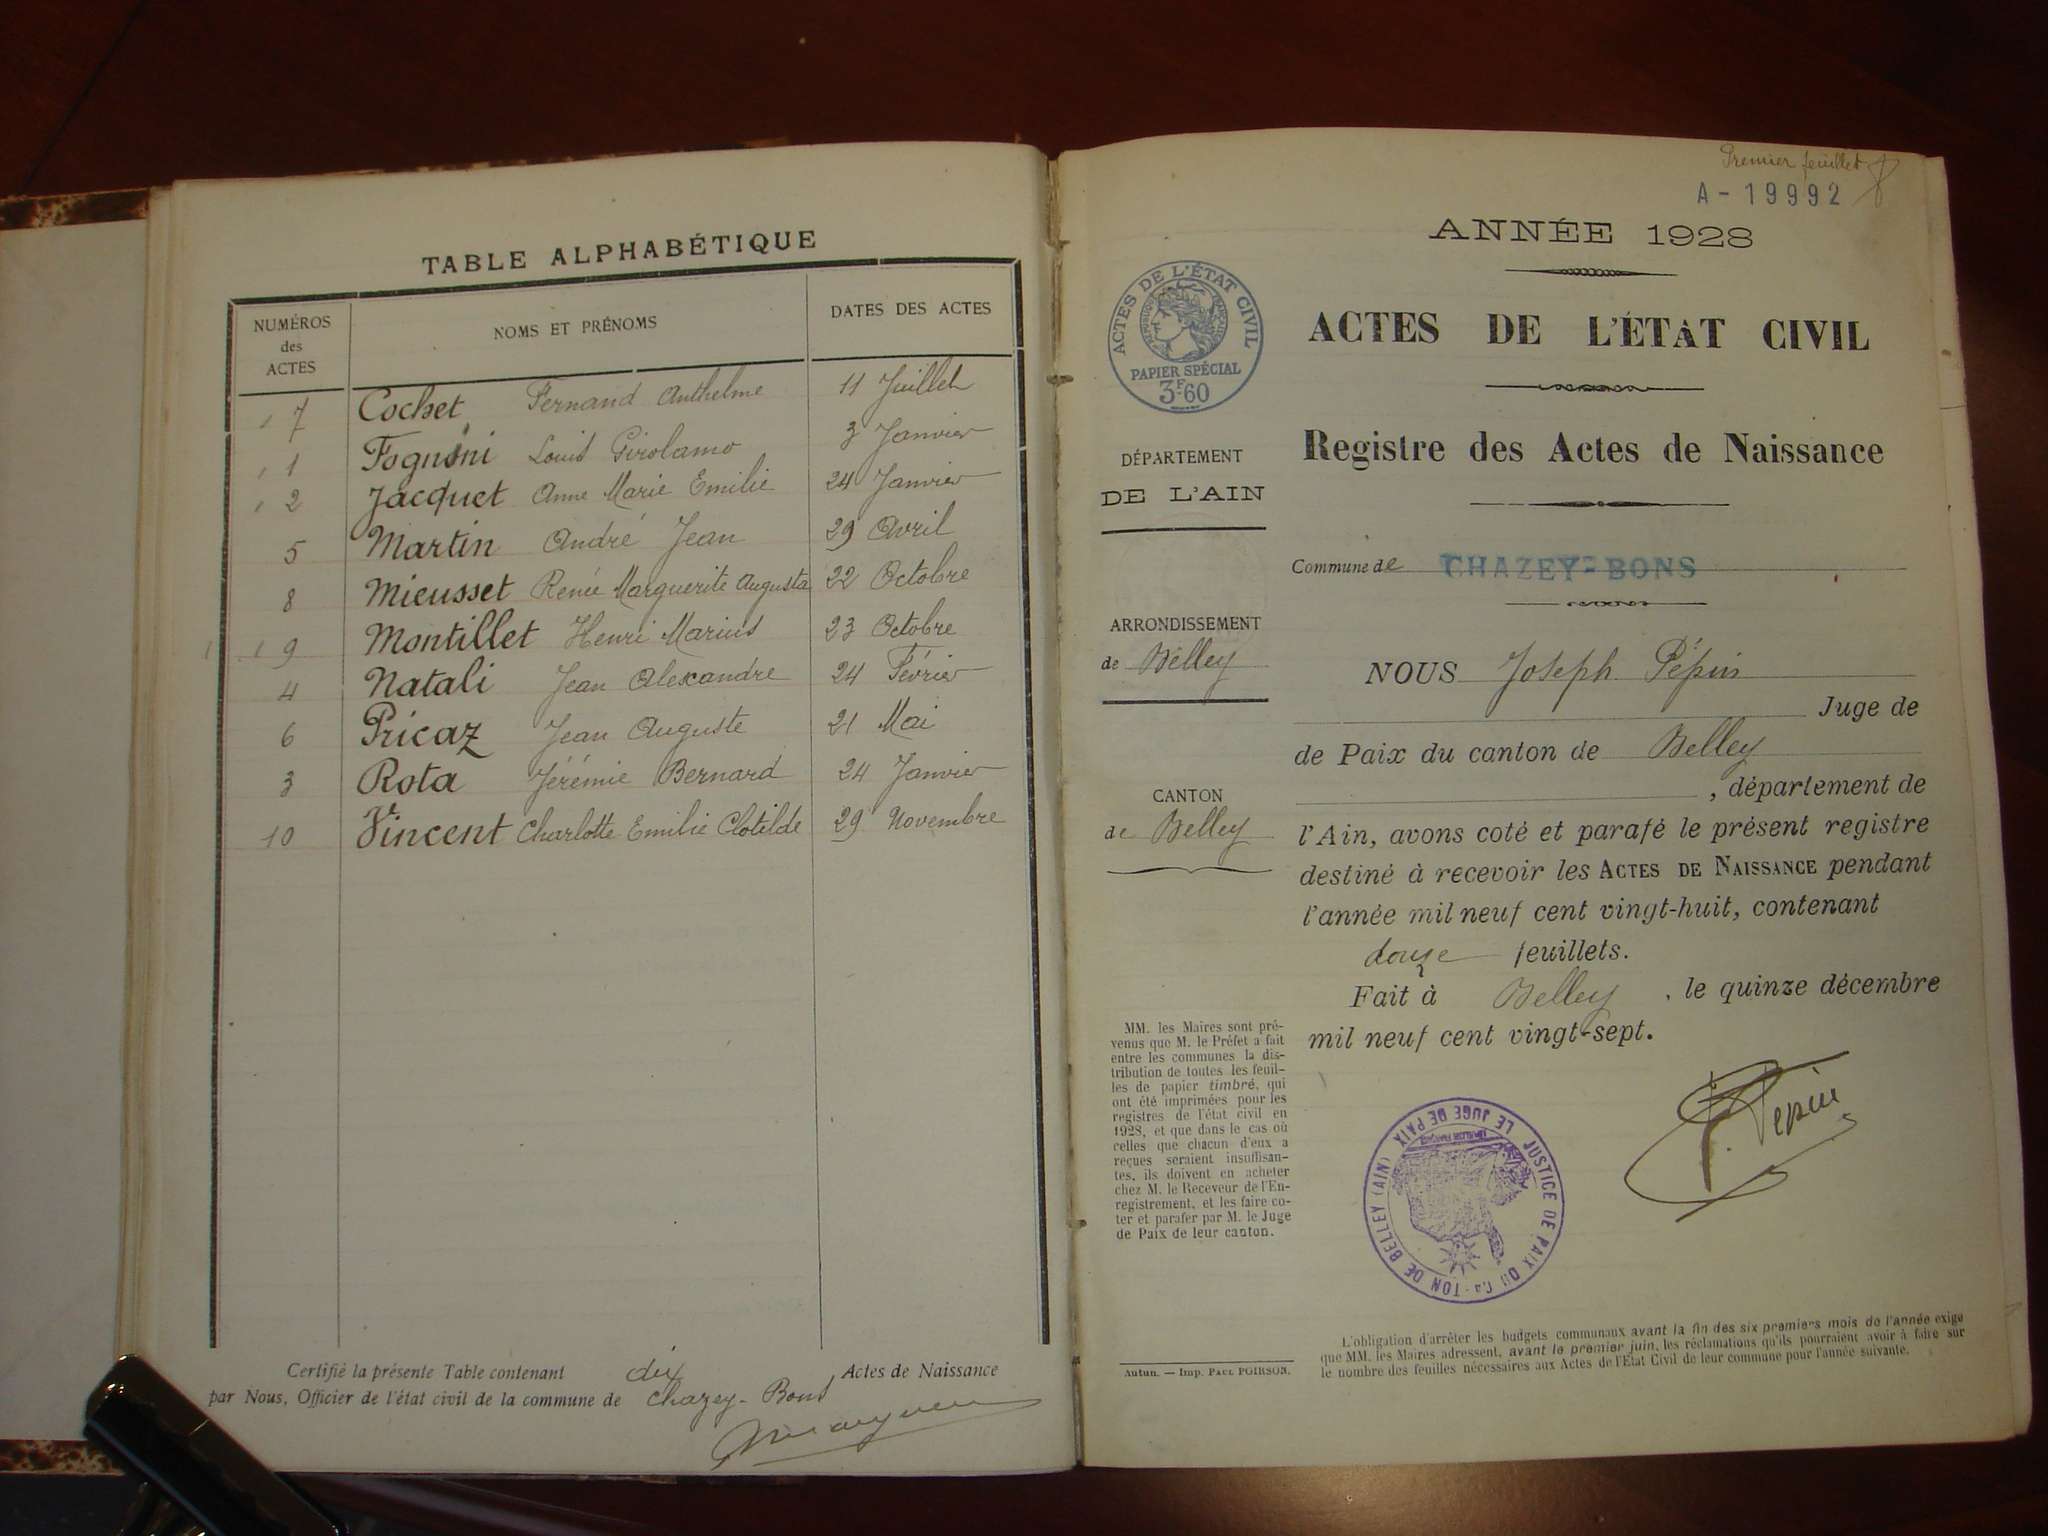 TABLE ALPHABÉTIQUE
NUMÉROS des ACTES
NOMS ET PRÉNOMS
DATES DES ACTES
7 Cochet Fernand Anthelme 11 Juillet
1 Fognini Louis Girolamo 3 Janvier
2 Jacquet Anne Marie Emilie 24 Janvier
5 Martin André Jean 29 Avril
8 Mieusset Renée Marguerite Augusta 22 Octobre
9 Montillet Henri Marius 23 Octobre
4 Natali Jean Alexandre 24 Février
6 Pricaz Jean Auguste 21 Mai
3 Rota Jérémie Bernard 24 Janvier
10 Vincent Charlotte Emilie Clotilde 29 Novembre
Certifié la présente Table contenant dix Actes de Naissance
par Nous, Officier de l'état civil de la commune de Chazey-Bons
Premier feuillet
A-19992
ANNÉE 1928
ACTES DE L'ÉTAT CIVIL
Registre des Actes de Naissance
ACTES DE L'ÉTAT CIVIL
RÉPUBLIQUE FRANÇAISE
PAPIER SPÉCIAL
3F.60
DÉPARTEMENT
DE L'AIN
ARRONDISSEMENT
de Belley
CANTON
de Belley
Commune de CHAZEY-BONS
NOUS Joseph Pépin
Juge de
de Paix du canton de Belley
, département de
l'Ain, avons coté et parafé le présent registre
destiné à recevoir les ACTES DE NAISSANCE pendant
l'année mil neuf cent vingt-huit, contenant
douze feuillets.
Fait à Belley, le quinze décembre
mil neuf cent vingt-sept.
MM. les Maires sont pré-
venus que M. le Préfet a fait
entre les communes la dis-
tribution de toutes les feuil-
les de papier timbré, qui
ont été imprimées pour les
registres de l'état civil en
1928, et que dans le cas où
celles que chacun d'eux a
reçues seraient insuffisan-
tes, ils doivent en acheter
chez M. le Receveur de l'En-
registrement, et les faire co-
ter et parafer par M. le Juge
de Paix de leur canton.
Pépin
JUSTICE DE PAIX DU CA-TON DE BELLEY (AIN)
LE JUGE DE PAIX
Autun. — Imp. PAUL POIRSON.
L'obligation d'arrêter les budgets communaux avant la fin des six premiers mois de l'année exige
que MM. les Maires adressent, avant le premier juin, les réclamations qu'ils pourraient avoir à faire sur
le nombre des feuilles nécessaires aux Actes de l'Etat Civil de leur commune pour l'année suivante.